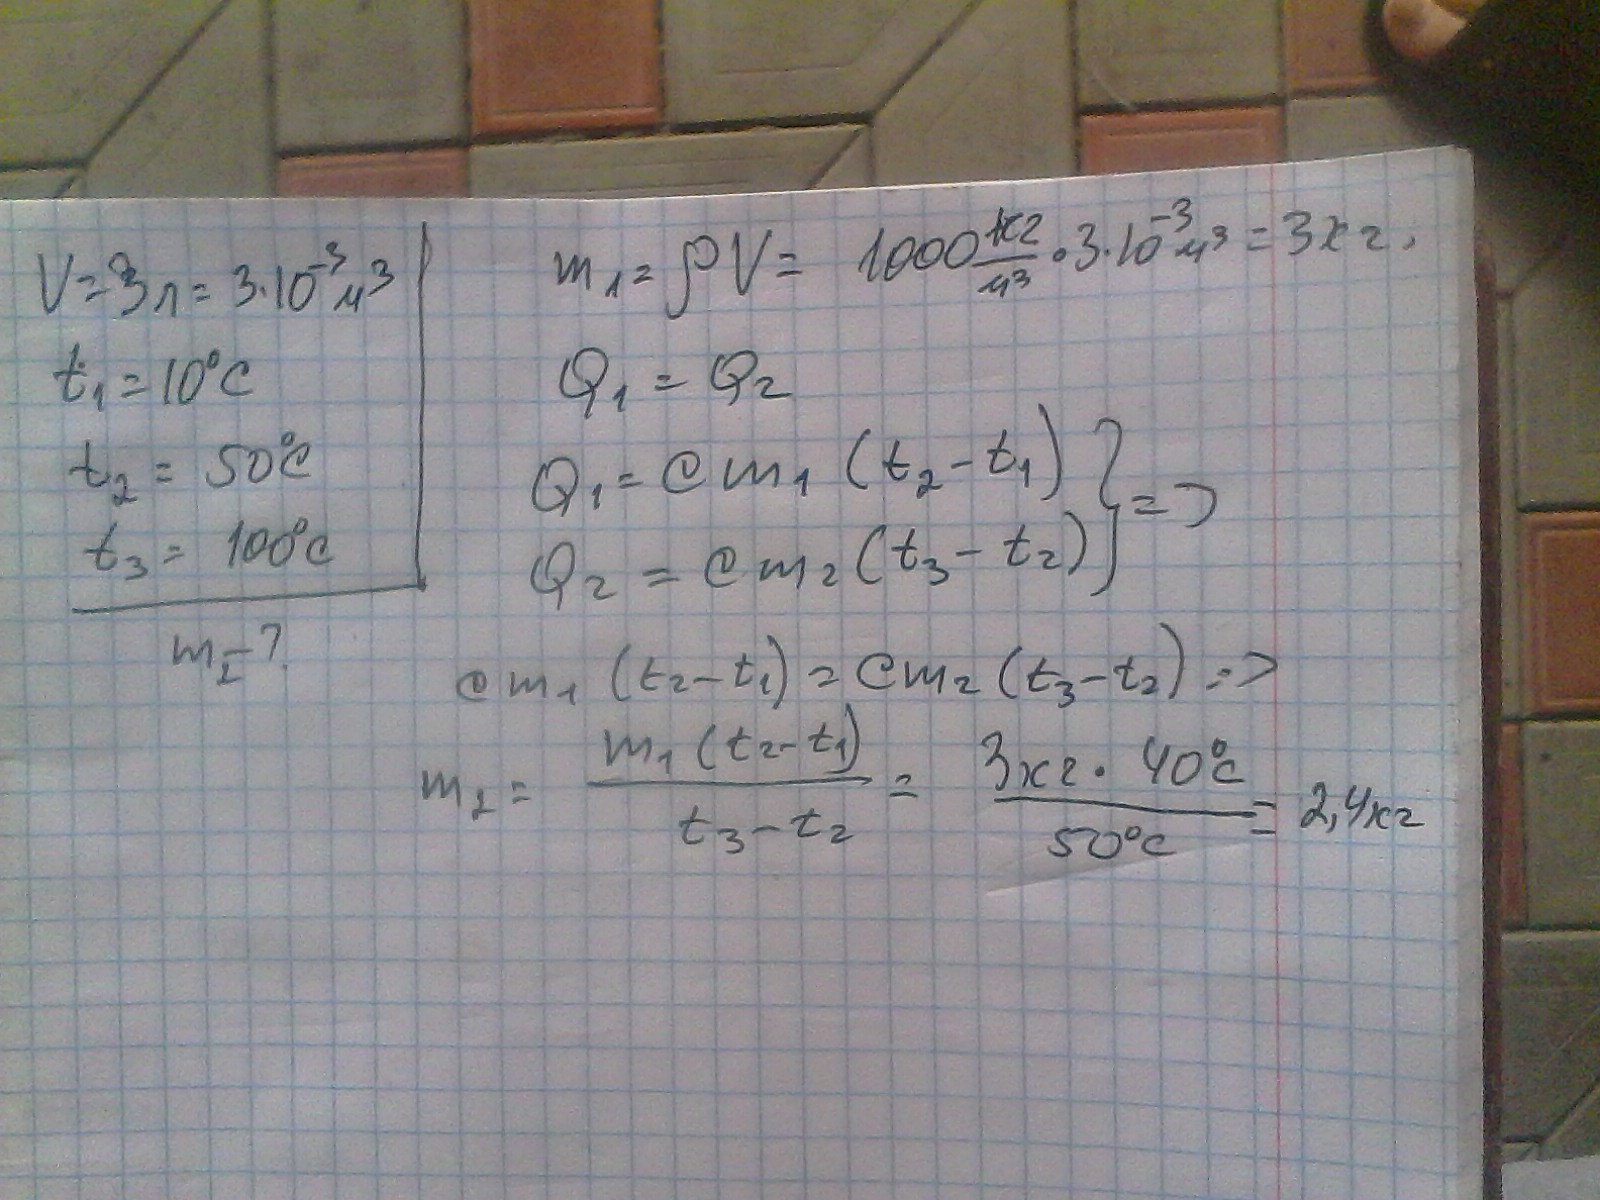 V=3л=3·10⁻³м³
t₁=10°C
t₂=50°C
t₃=100°C
m₂-?
m₁=ρV= 1000 кг/м³·3·10⁻³м³=3кг.
Q₁=Q₂
Q₁=cm₁(t₂-t₁) } =>
Q₂=cm₂(t₃-t₂)
cm₁(t₂-t₁)=cm₂(t₃-t₂)=>
m₂= m₁(t₂-t₁)/(t₃-t₂) = 3кг·40°C/50°C = 2,4кг